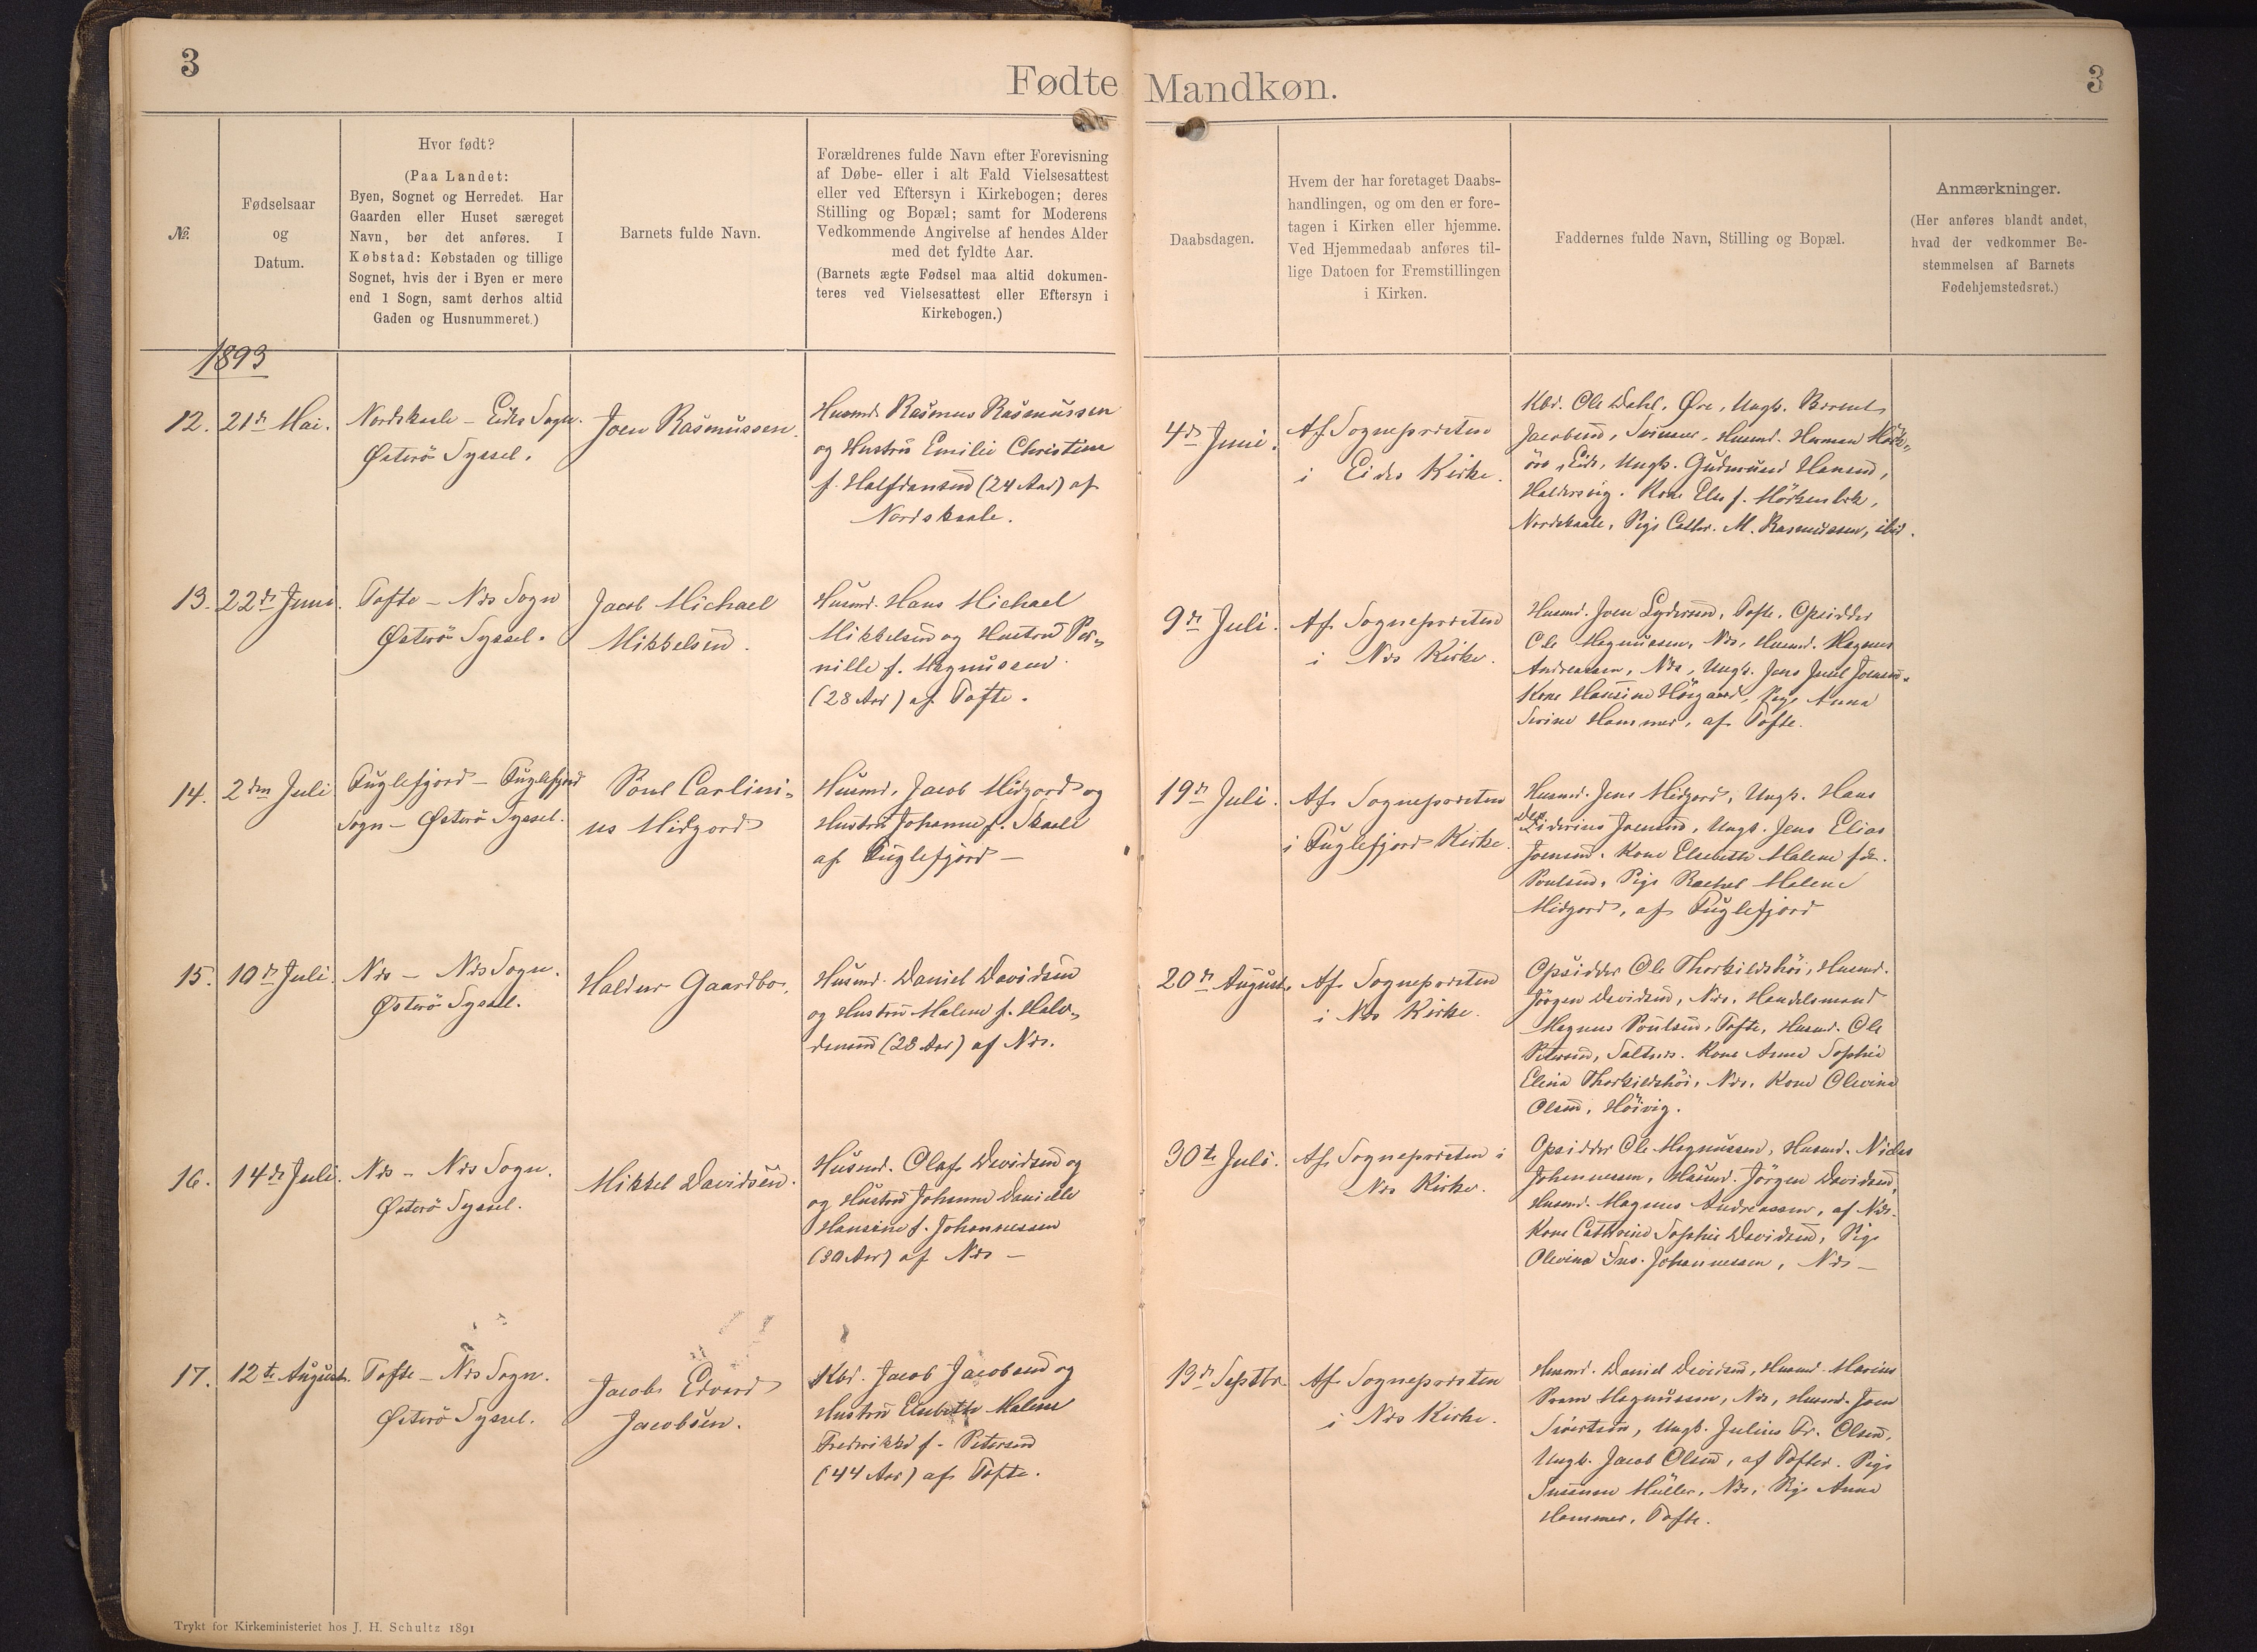 3
Fødte Mandkøn.
3
№
Fødselsaar
og
Datum.
Hvor født?
(Paa Landet:
Byen, Sognet og Herredet. Har
Gaarden eller Huset særeget
Navn, bør det anføres. I
Købstad: Købstaden og tillige
Sognet, hvis der i Byen er mere
end 1 Sogn, samt derhos altid
Gaden og Husnummeret.)
Barnets fulde Navn.
Forældrenes fulde Navn efter Forevisning
af Døbe- eller i alt Fald Vielsesattest
eller ved Eftersyn i Kirkebogen; deres
Stilling og Bopæl; samt for Moderens
Vedkommende Angivelse af hendes Alder
med det fyldte Aar.
(Barnets ægte Fødsel maa altid dokumen-
teres ved Vielsesattest eller Eftersyn i
Kirkebogen.)
Daabsdagen.
Hvem der har foretaget Daabs-
handlingen, og om den er fore-
tagen i Kirken eller hjemme.
Ved Hjemmedaab anføres til-
lige Datoen for Fremstillingen
i Kirken.
Faddernes fulde Navn, Stilling og Bopæl.
Anmærkninger.
(Her anføres blandt andet,
hvad der vedkommer Be-
stemmelsen af Barnets
Fødehjemstedsret.)
1893
12.
21de Mai.
Nordskaale – Eides Sogn.
Østerö Syssel.
Joen Rasmussen.
Husmd. Rasmus Rasmussen
og Hustru Emilie Christine
f. Halfdansen (24 Aar) af
Nordskaale.
4de Juni.
Af Sognepræsten
i Eides Kirke.
Kbd. Ole Dahl, Øre, Ungk. Berent
Jacobsen, Husmd. Herman
Eide, Ungk. Gudmund Hansen,
Haldersvig. Kone Else f.
Nordskaale, Pige Cathr. M. Rasmussen, ibid.
13.
22de Juni.
Tofte – Næs Sogn
Østerö Syssel.
Jacob Michael
Mikkelsen.
Husmd. Hans Michael
Mikkelsen og Hustru Per-
nille f. Magnussen.
(28 Aar) af Tofte.
9de Juli.
Af Sognepræsten
i Næs Kirke.
Husmd. Joen Lydersen, Tofte. Opsidder
Ole Magnussen, Næs, Husmd. Magnus
Andreassen, Næs, Ungk. Jens Juul Joensen.
Kone Hansine Høigaard, Pige Anna
Sivine Hammer, af Tofte.
14.
2den Juli
Fuglefjord – Fuglefjord
Sogn – Østerö Syssel.
Poul Carlini-
us Midgord
Husmd. Jacob Midgord og
Hustru Johanne f. Skaale
af Fuglefjord –
19de Juli.
Af Sognepræsten
i Fuglefjord Kirke.
Husmd. Jens Midgord, Ungk. Hans
Joensen, Ungk. Jens Elias
Joensen. Kone Elsebeth Malene fød.
Poulsen, Pige Rachel Malene
Midgord, af Fuglefjord
15.
10de Juli.
Næs – Næs Sogn.
Østerö Syssel.
Haldur Gaardbo.
Husmd. Daniel Davidsen
og Hustru Malene f. Halv-
dansen (28 Aar) af Næs.
20de August.
Af Sognepræsten
i Næs Kirke.
Opsidder Ole Thorkildshöi, Husmd.
Jörgen Davidsen, Næs. Handelsmand
Magnus Poulsen, Tofte, Husmd. Ole
Petersen, Saltnæs. Kone Anne Sophie
Elina Thorkildshöi, Næs, Kone Olevina
Olsen, Höivig.
16.
14de Juli.
Næs – Næs Sogn.
Østerö Syssel.
Mikkel Davidsen.
Husmd. Olaf Davidsen og
og Hustru Johanne Danielle
Hansine f. Johannessen
(30 Aar) af Næs –
30te Juli.
Af Sognepræsten i
Næs Kirke.
Opsidder Ole Magnussen, Husmd. Niclas
Johannessen, Husmd. Jörgen Davidsen,
Husmd. Magnus Andreassen, af Næs.
Kone Cathrine Sophie Davidsen, Pige
Olevina Sus. Johannessen, Næs –
17.
12te August.
Tofte – Næs Sogn.
Østerö Syssel.
Jacob Edvard
Jacobsen.
Kbd. Jacob Jacobsen og
Hustru Elsebeth Malene
Frederikke f. Petersen
(44 Aar) af Tofte.
13de Septbr.
Af Sognepræsten
i Næs Kirke.
Husmd. Daniel Davidsen, Husmd. Marius
Magnussen, Næs, Husmd. Joen
Sivertsen, Ungk. Julius Fr. Olsen,
Ungk. Jacob Olsen, af Tofte. Pige
Susanne Müller, Næs, Pige Anna
Hammer, Tofte.
Trykt for Kirkeministeriet hos J. H. Schultz 1891